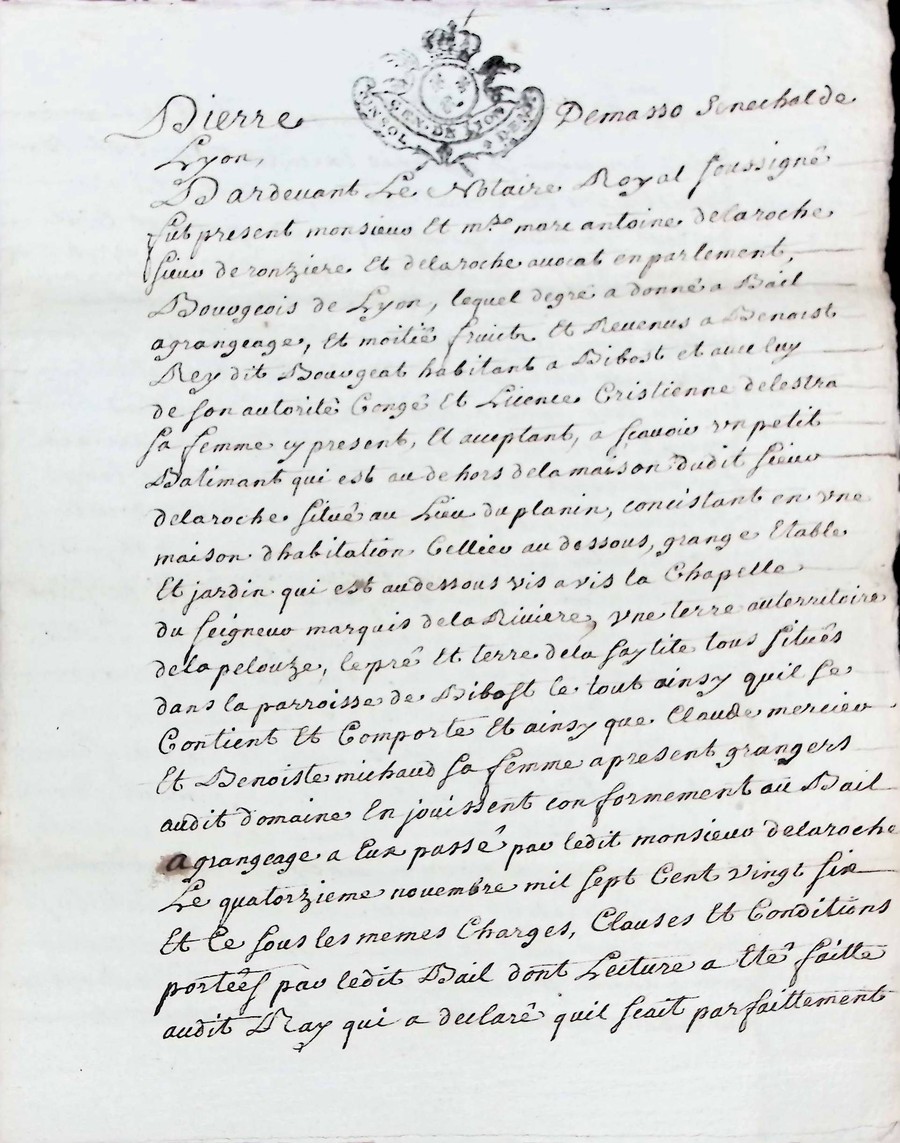 GEN. DE LYON
Pierre Demasso Senechal de
Lyon,
Pardevant Le Notaire Royal soussigné
fut present monsieur Et mre marc antoine delaroche
sieur deronziere Et delaroche avocat en parlement,
Bourgeois de Lyon, lequel degré a donné a Bail
agrangeage, Et moitié fruits Et Revenus a Benoist
Rey dit Bourgeat habitant a Bibost et avec luy
de son autorité Congé Et Licence Cristienne delestra
sa femme cy present, Et acceptant, a scavoir un petit
Batimant qui est au dehors dela maison dudit sieur
delaroche situé au Lieu du planin, concistant en vne
maison dhabitation Cellier au dessous, grange Etable
Et jardin qui est audessous vis a vis la Chapelle
du seigneur marquis dela Riviere, vne terre au territoire
dela pelouze, le pré Et terre dela saytite tous situés
dans la parroisse de Bibost le tout ainsy quil se
Contient Et Comporte Et ainsy que Claude mercier
Et Benoiste michaud sa femme apresent grangers
audit domaine En jouissent conformement au Bail
agrangeage a Eux passé par ledit monsieur delaroche
Le quatorzieme novembre mil sept Cent vingt six
Et Ce sous les memes Charges, Clauses Et Conditions
portées par ledit Bail dont Lecture a Eté faitte
audit Ray qui a declaré quil scait parfaittement